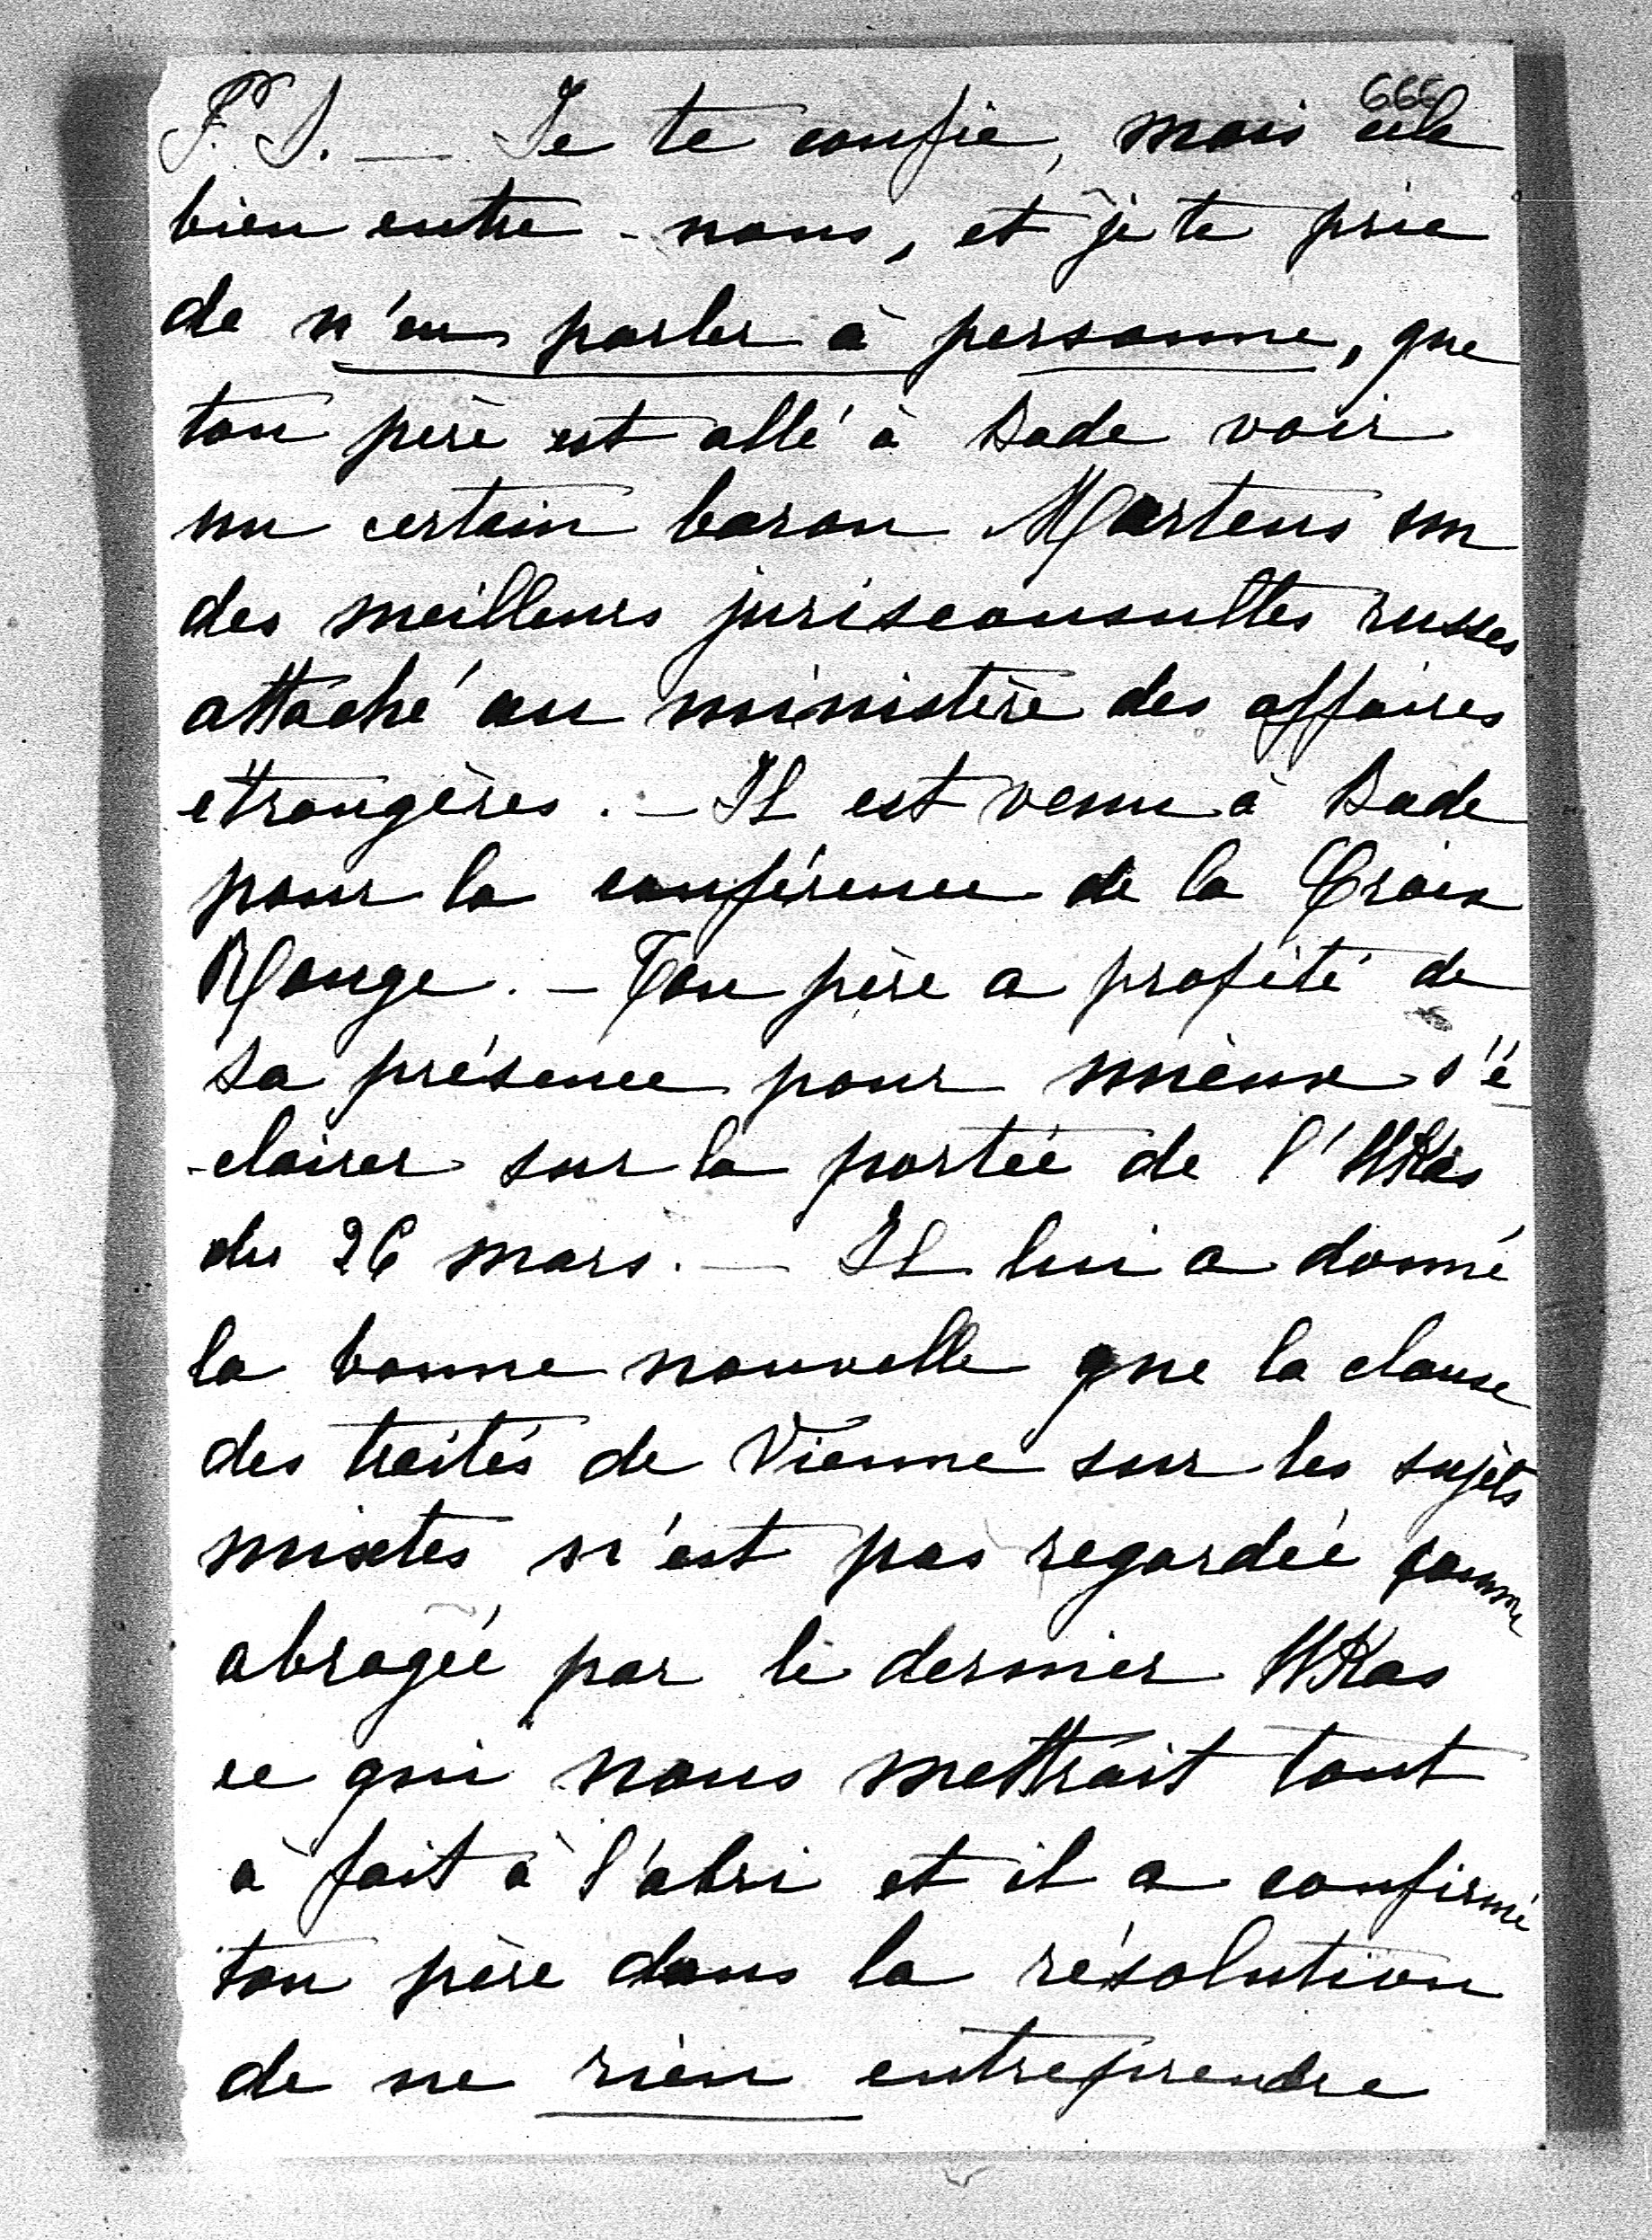 666
P. S. — Je te confie, mais cela
bien entre-nous, et je te prie
de n'en parler à personne, que
ton père est allé à Bade voir
un certain baron Martens un
des meilleurs jurisconsultes russes
attaché au ministère des affaires
etrangères. — Il est venu à Bade
pour la conférence de la Croix
Rouge. — Ton père a profité de
sa présence pour mieux s'é
-clairer sur la portée de l'Ukas
du 26 mars. — Il lui a donné
la bonne nouvelle que la clause
des traités de Vienne sur les sujets
mixtes n'est pas regardée comme
abrogée par le dernier Ukas
ce qui nous mettrait tout
à fait à l'abri et il a confirmé
ton père dans la résolution
de ne rien entreprendre